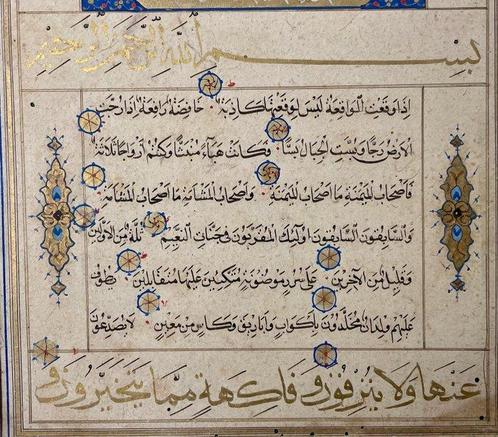 بسم الله الرحمن الرحيم
اذا وقعت الواقعة ليس لوقعتها كاذبة خافضة رافعة اذا رجت
الارض رجا وبست الجبال بسا فكانت هباء منبثا وكنتم ازواجا ثلاثة
فاصحاب الميمنة ما اصحاب الميمنة واصحاب المشامة ما اصحاب المشامة
والسابقون السابقون اولئك المقربون في جنات النعيم ثلة من الاولين
وقليل من الاخرين على سرر موضونة متكئين عليها متقابلين يطوف
عليهم ولدان مخلدون باكواب واباريق وكاس من معين لا يصدعون
عنها ولا ينزفون وفاكهة مما يتخيرون و